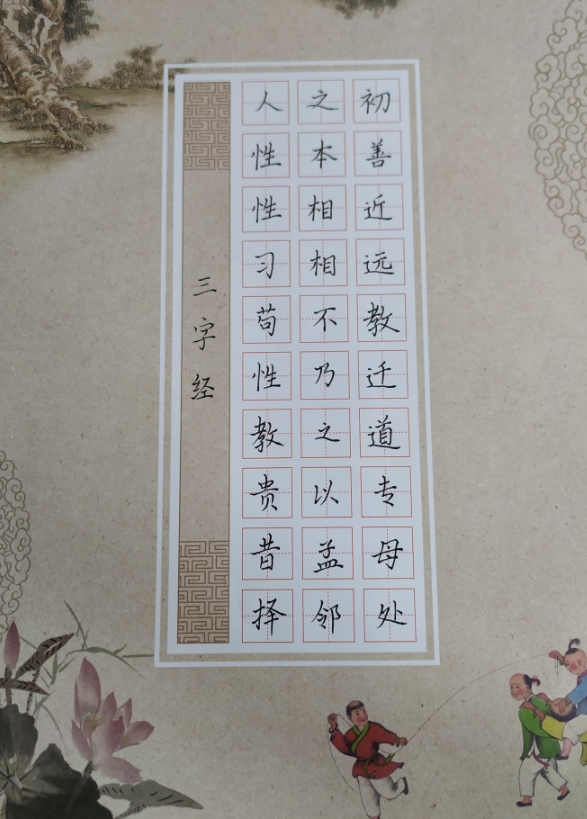 三字经
人之初
性本善
性相近
习相远
苟不教
性乃迁
教之道
贵以专
昔孟母
择邻处